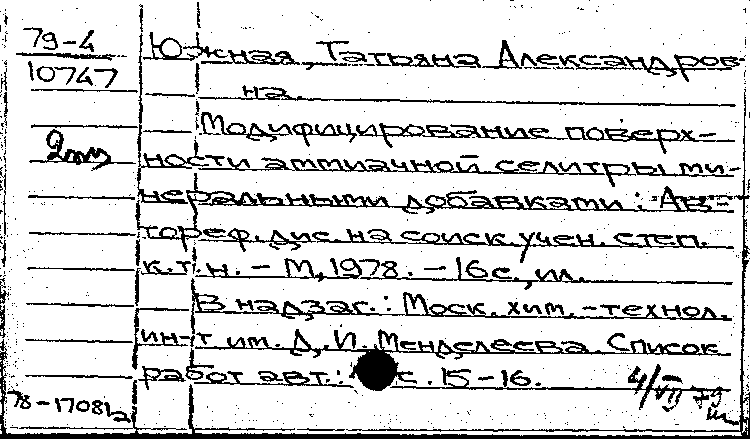 79-4
10747
Южная, Татьяна Александров-
на.
Модифицирование поверх-
ности аммиачной селитры ми-
неральными добавками : Ав-
тореф. дис. на соиск. учен. степ.
к.т.н. - М, 1978. - 16 с., ил.
В надзаг.: Моск. хим.-технол.
ин-т им. Д. И. Менделеева. Список
работ авт.: с. 15-16.
4/VII 79
78-17081